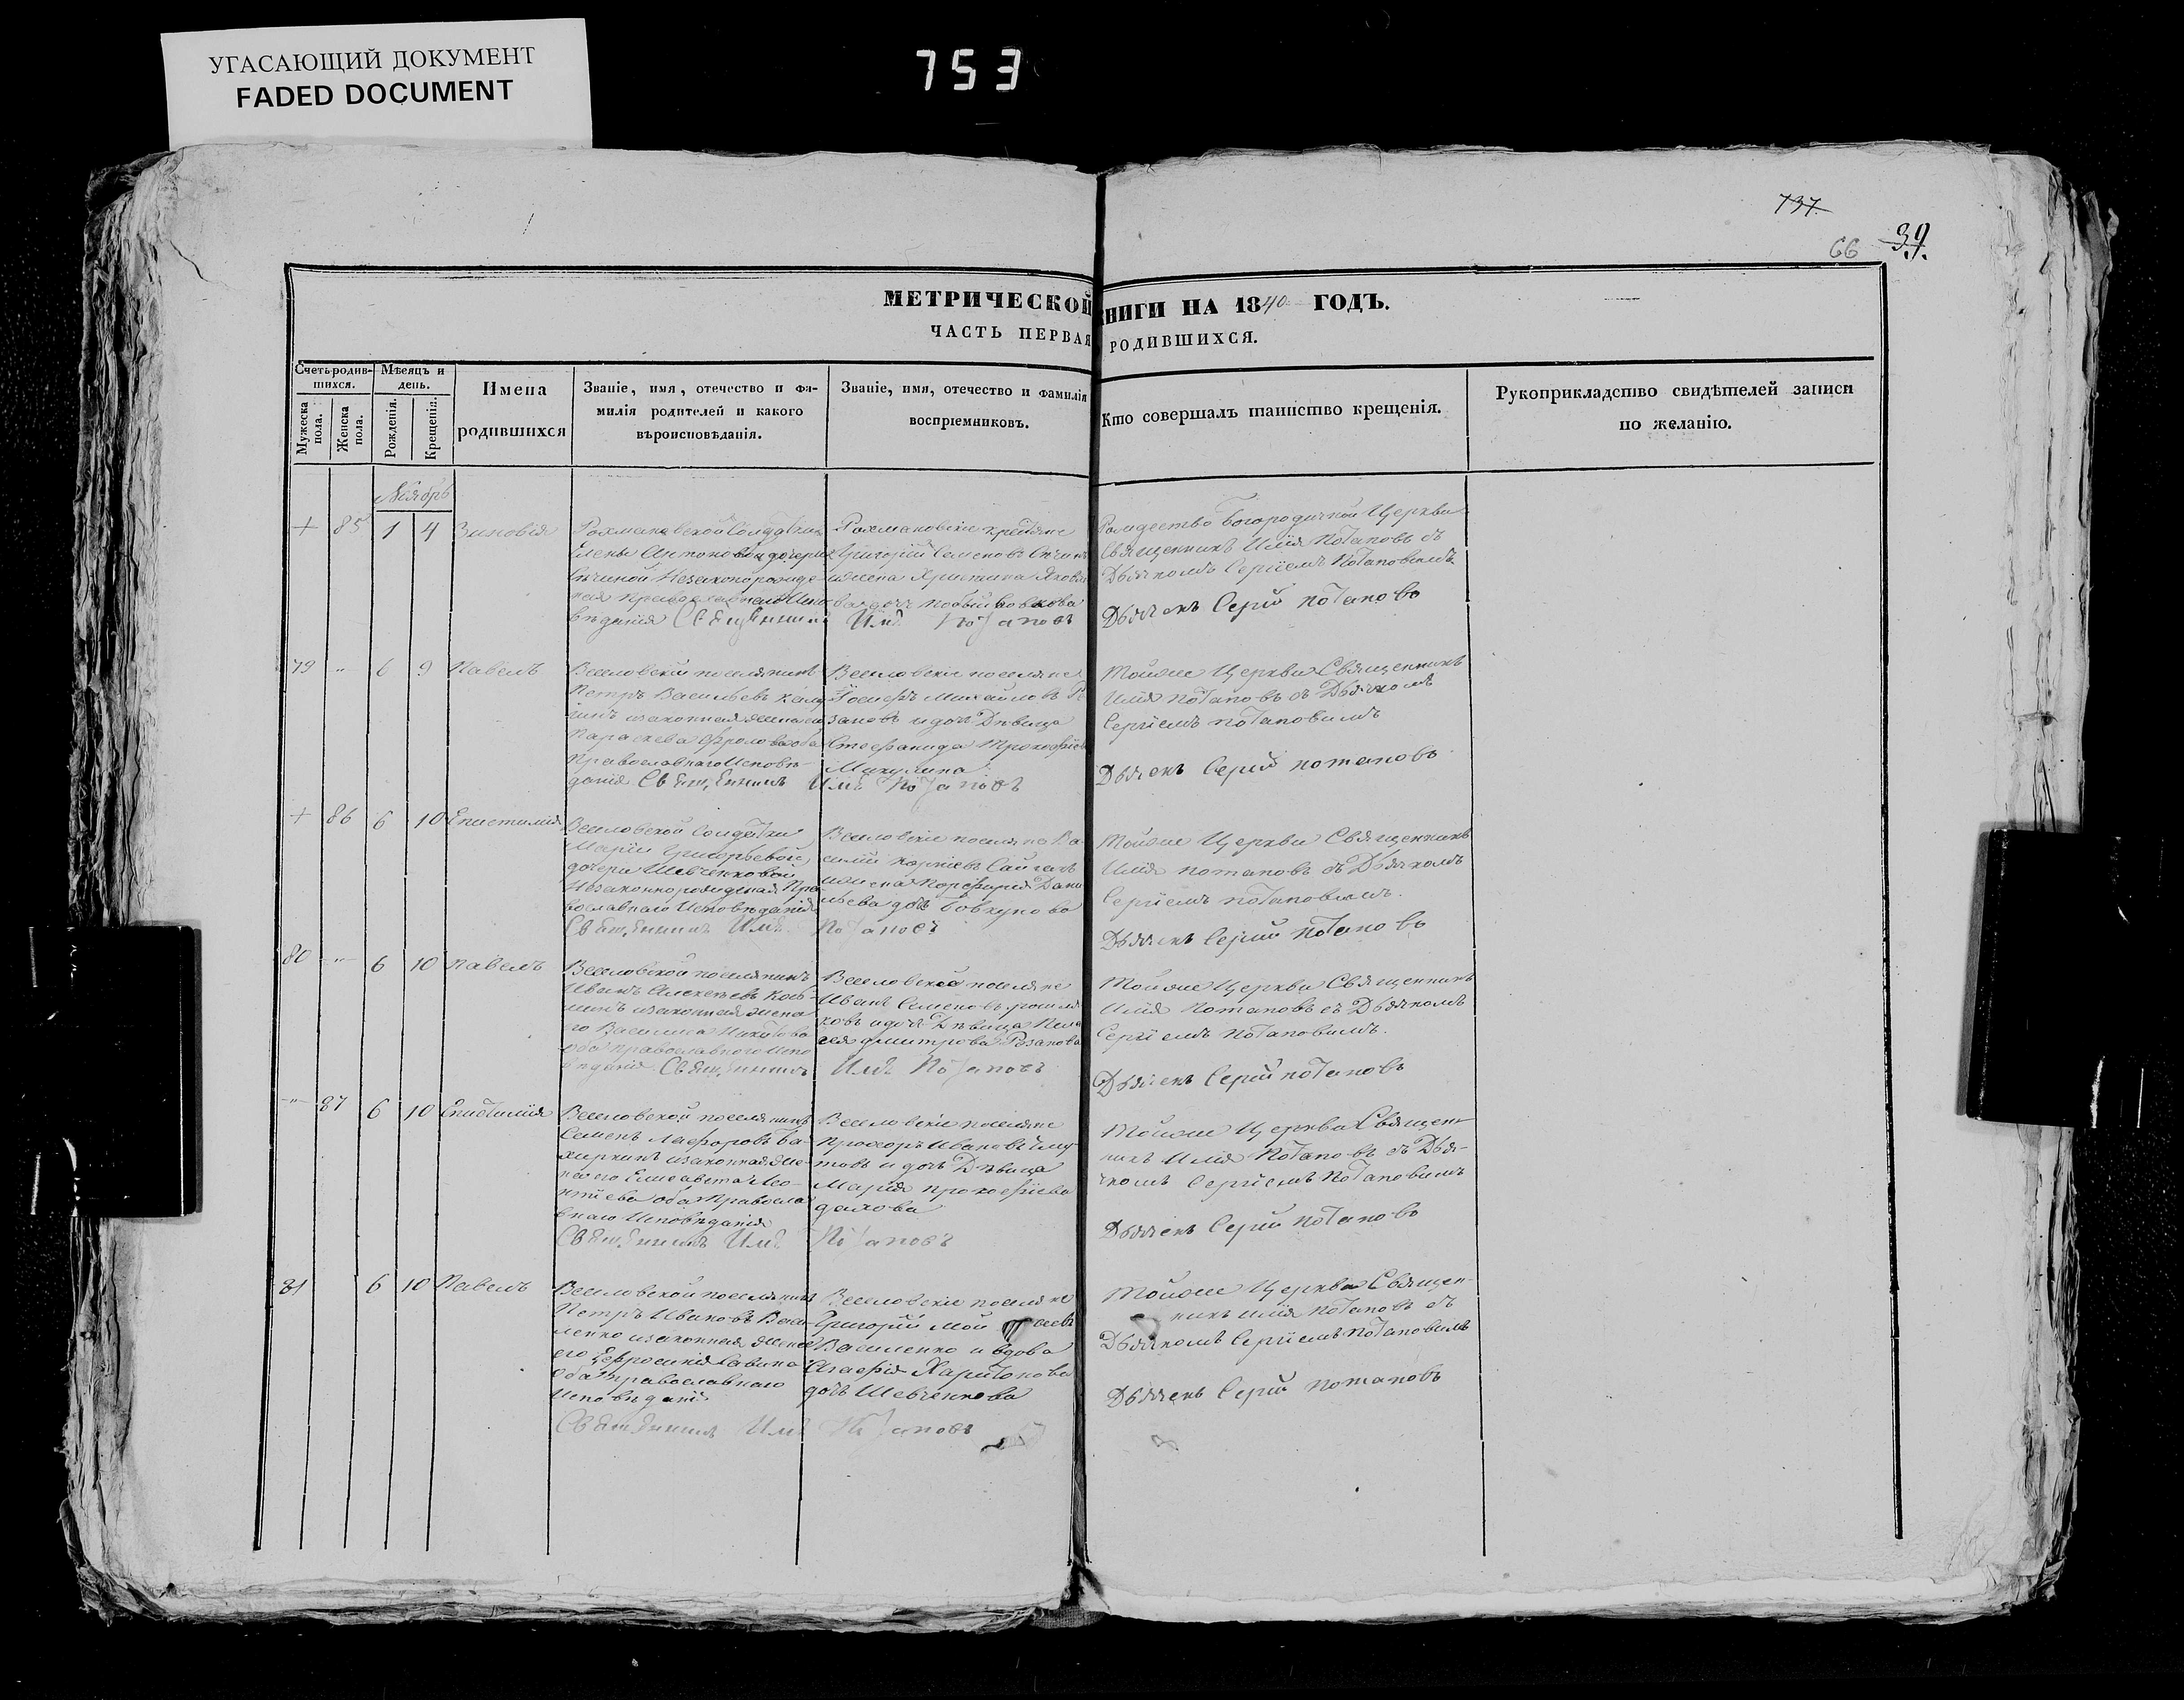 УГАСАЮЩИЙ ДОКУМЕНТ
FADED DOCUMENT
753
737.
66
39.
МЕТРИЧЕСКОЙ КНИГИ НА 1840 ГОДЪ.
ЧАСТЬ ПЕРВАЯ РОДИВШИХСЯ.
Счетъ родив-
шихся.
Мужеска пола.
Женска пола.
Мѣсяцъ и
день.
Рожденія.
Крещенія.
Имена
родившихся
Званіе, имя, отечество и фа-
милія родителей и какого
вѣроисповѣданія.
Званіе, имя, отечество и фамилія
воспріемниковъ.
Кто совершалъ таинство крещенія.
Рукоприкладство свидѣтелей записи
по желанію.
Ноябрь
+ 85 1 4 Зиновія
Рахмановской Солдатки
Елены Антоновой дочери
Незаконорожде-
ная Православнаго Испо-
вѣданія Священникъ
Рахмановскіе крестьяне
Григорій Семеновъ
ижена Христина Яковле
ва дочь
Илія Потаповъ
Рождество Богородичной Церкви
Священникъ Илія Потаповъ съ
Дьячкомъ Сергіемъ Потаповымъ
Дьячекъ Сергій Потаповъ
79 " 6 9 Павелъ
Веселовской поселянинъ
Петръ Васильевъ
изаконная жена его
Параскева Фролова оба
Православнаго Исповѣ-
данія Священникъ
Веселовскіе поселяне
Іосифъ Михайловъ Рѣ
зановъ и дочь Дѣвица
Стефанида Прокофіева
Микулина
Илія Потаповъ
Тойже Церкви Священникъ
Илія Потаповъ съ Дьячкомъ
Сергіемъ Потаповымъ
Дьячекъ Сергій Потаповъ
+ 86 6 10 Епистимія
Веселовской Солдатки
Маріи Григорьевой
дочери Шевченковой
Незаконнорожденая Пра
вославнаго Исповѣданія
Священникъ Илія
Веселовскіе поселяне Ва
силій
Порфирія Дани
льева дочь Бовкунова
Потаповъ
Тойже Церкви Священникъ
Илія Потаповъ съ Дьячкомъ
Сергіемъ Потаповымъ.
Дьячекъ Сергій Потаповъ
80 " 6 10 Павелъ
Веселовской поселянинъ
Иванъ Алексѣевъ
изаконная жена
его Василиса Никитова
оба православнаго Испо
вѣданія Священникъ
Веселовскіе поселяне
Иванъ Семеновъ
ковъ и дочь Дѣвица Пела
гея Дмитрова Рѣзанова
Илія Потаповъ
Тойже Церкви Священникъ
Илія Потаповъ съ Дьячкомъ
Сергіемъ Потаповымъ.
Дьячекъ Сергій Потаповъ
" 87 6 10 Епистимія
Веселовской поселянинъ
Семенъ
изаконная же-
на его Елисавета Лео-
нтіева оба Правосла
внаго Исповѣданія
Священникъ Илія
Веселовскіе поселяне
Прохоръ Ивановъ
и дочь Дѣвица
Марія Прокофіева
Потаповъ
Тойже Церкви Священ-
никъ Илія Потаповъ съ Дья-
чкомъ Сергіемъ Потаповымъ
Дьячекъ Сергій Потаповъ
81 6 10 Павелъ
Веселовской поселянинъ
Петръ Ивановъ Васи-
ленко изаконная жена
его Ефросинія Савина
оба православнаго
Исповѣданія
Священникъ Илія
Веселовскіе поселяне
Григорій
Василенко и вдова
Агафія Харитонова
дочь Шевченкова
Потаповъ
Тойже Церкви Священ-
никъ Илія Потаповъ съ
Дьячкомъ Сергіемъ Потаповымъ
Дьячекъ Сергій Потаповъ